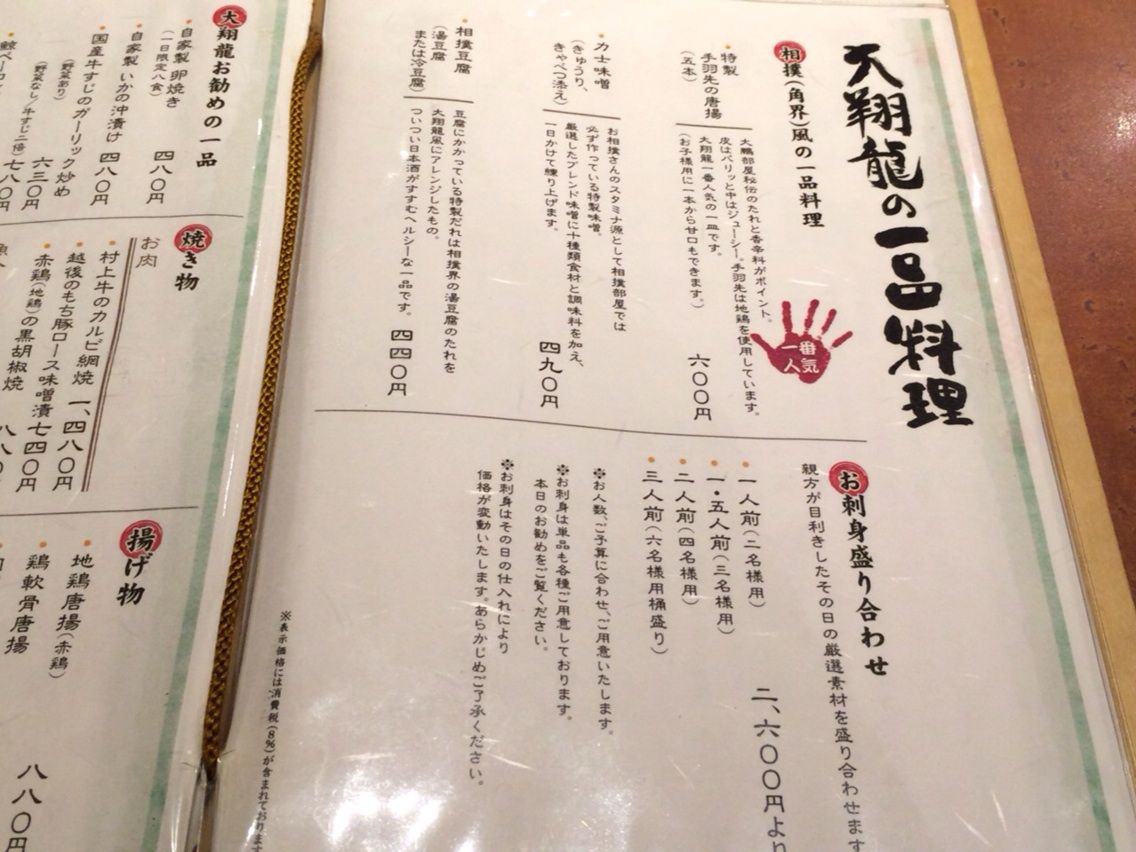 大翔龍の一品料理
相撲(角界)風の一品料理
特製
手羽先の唐揚
(五本)
大鵬部屋秘伝のたれと香辛料がポイント。
皮はパリッと中はジューシー。手羽先は地鶏を使用しています。
大翔龍一番人気の一皿です。
(お子様用に一本から甘口もできます。)
六〇〇円
一番
人気
力士味噌
(きゅうり、
きゃべつ添え)
お相撲さんのスタミナ源として相撲部屋では
必ず作っている特製味噌。
厳選したブレンド味噌に十種類食材と調味料を加え、
一日かけて練り上げます。
四九〇円
相撲豆腐
(湯豆腐
または冷豆腐)
豆腐にかかっている特製だれは相撲界の湯豆腐のたれを
大翔龍風にアレンジしたもの。
ついつい日本酒がすすむヘルシーな一品です。
四四〇円
お刺身盛り合わせ
親方が目利きしたその日の厳選素材を盛り合わせます
一人前(二名様用)
二、六〇〇円より
一・五人前(三名様用)
二人前(四名様用)
三人前(六名様用桶盛り)
※お人数、ご予算に合わせ、ご用意いたします。
※お刺身は単品も各種ご用意しております。
本日のお勧めをご覧ください。
※お刺身はその日の仕入れにより
価格が変動いたします。あらかじめご了承ください。
※表示価格には消費税(8%)が含まれております
大翔龍お勧めの一品
自家製 卵焼き
(一日限定八食)
四八〇円
自家製 いかの沖漬け
四八〇円
国産牛すじのガーリック炒め
(野菜あり)
六三〇円
(野菜なし/牛すじ二倍)
七八〇円
鯨ベーコン
焼き物
お肉
村上牛のカルビ網焼 一、四八〇円
越後のもち豚ロース味噌漬 七四〇円
赤鶏(地鶏)の黒胡椒焼
八八〇円
揚げ物
地鶏唐揚(赤鶏)
八八〇円
鶏軟骨唐揚